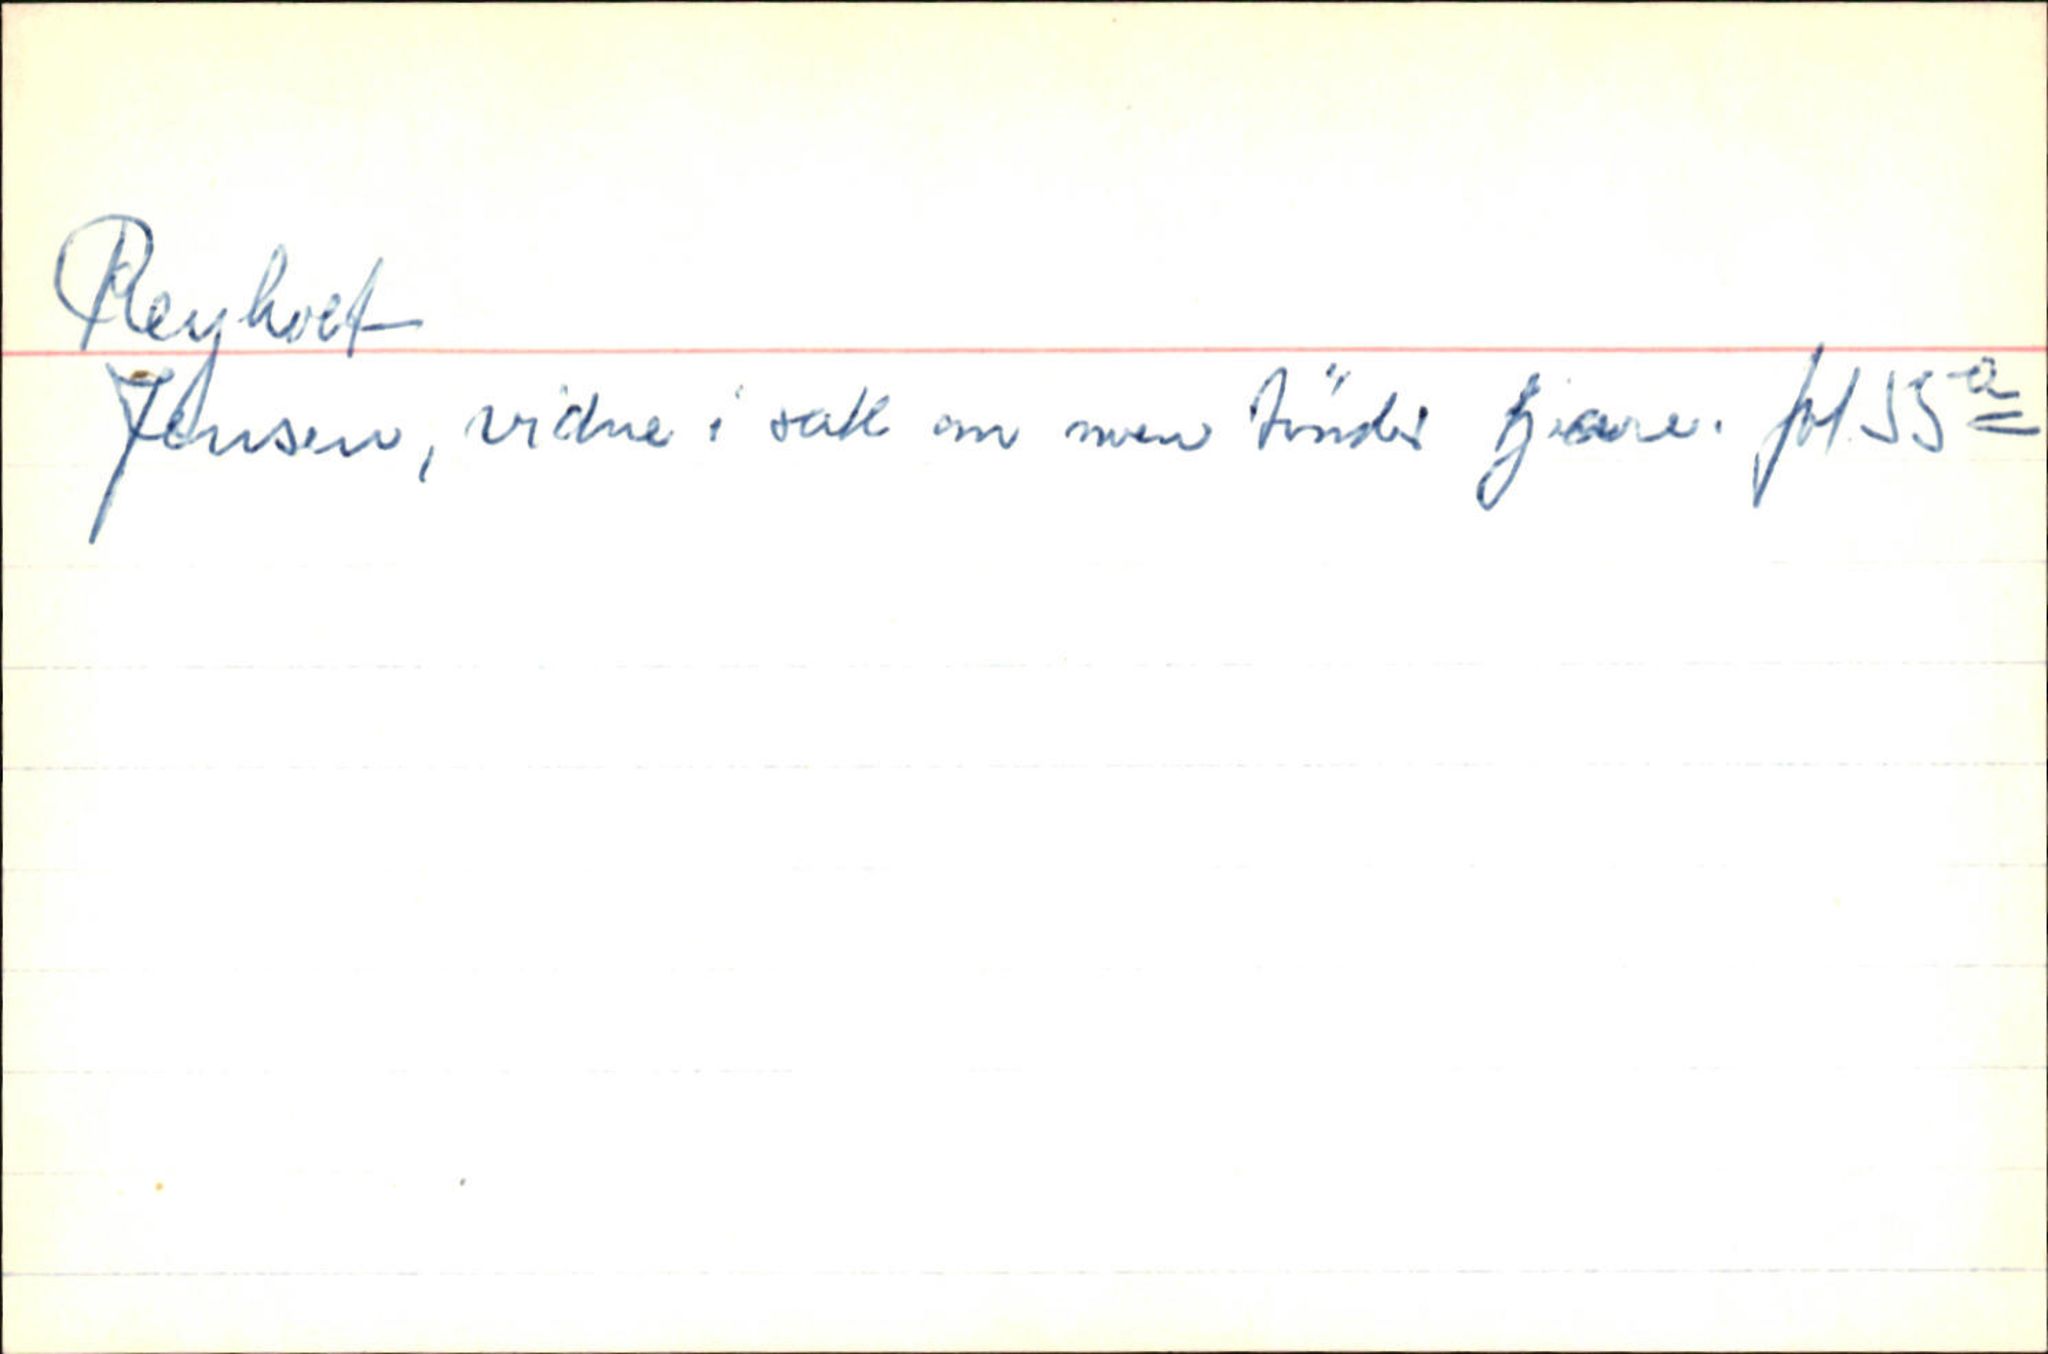 Reyholt
Jensen, vidne i sak om noen tünder tjære. fol 55ª